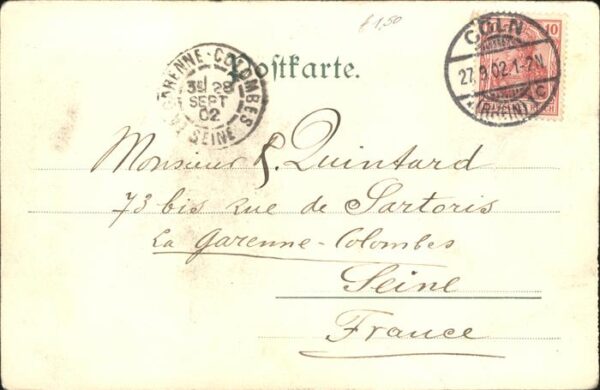 £ 1,50
CÖLN
10
27.9.02.1-2N.
*(RHEIN)*C
GARENNE-COLOMBES
3E 28
SEPT
02
SEINE
Postkarte.
Monsieur Quintard
73 bis rue de Sartoris
La Garenne-Colombes
Seine
France